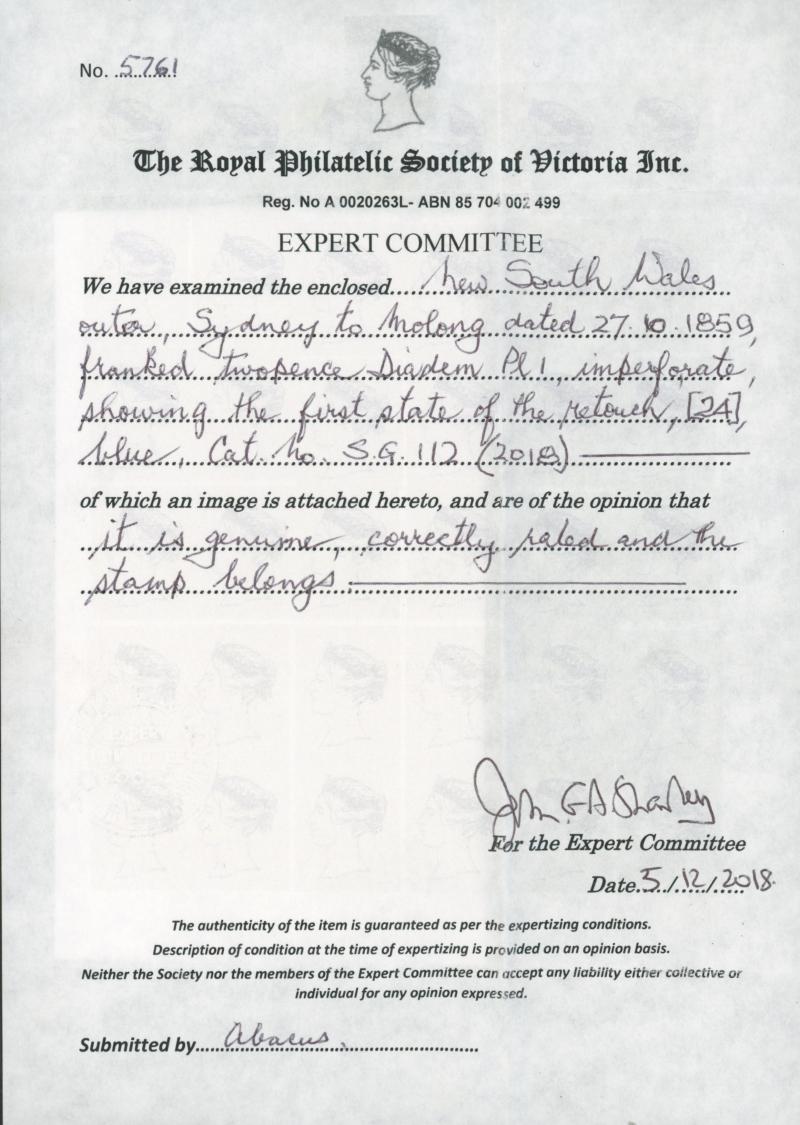 No. 5761
The Royal Philatelic Society of Victoria Inc.
Reg. No A 0020263L- ABN 85 704 002 499
EXPERT COMMITTEE
We have examined the enclosed New South Wales
outer, Sydney to Molong dated 27.10.1859,
franked twopence Diadem Pl 1, imperforate,
showing the first state of the retouch, [24],
blue, Cat. No. S.G. 112 (2018)
of which an image is attached hereto, and are of the opinion that
it is genuine, correctly rated and the
stamp belongs
John G A Sharley
For the Expert Committee
Date 5/12/2018
The authenticity of the item is guaranteed as per the expertizing conditions.
Description of condition at the time of expertizing is provided on an opinion basis.
Neither the Society nor the members of the Expert Committee can accept any liability either collective or
individual for any opinion expressed.
Submitted by Abacus.